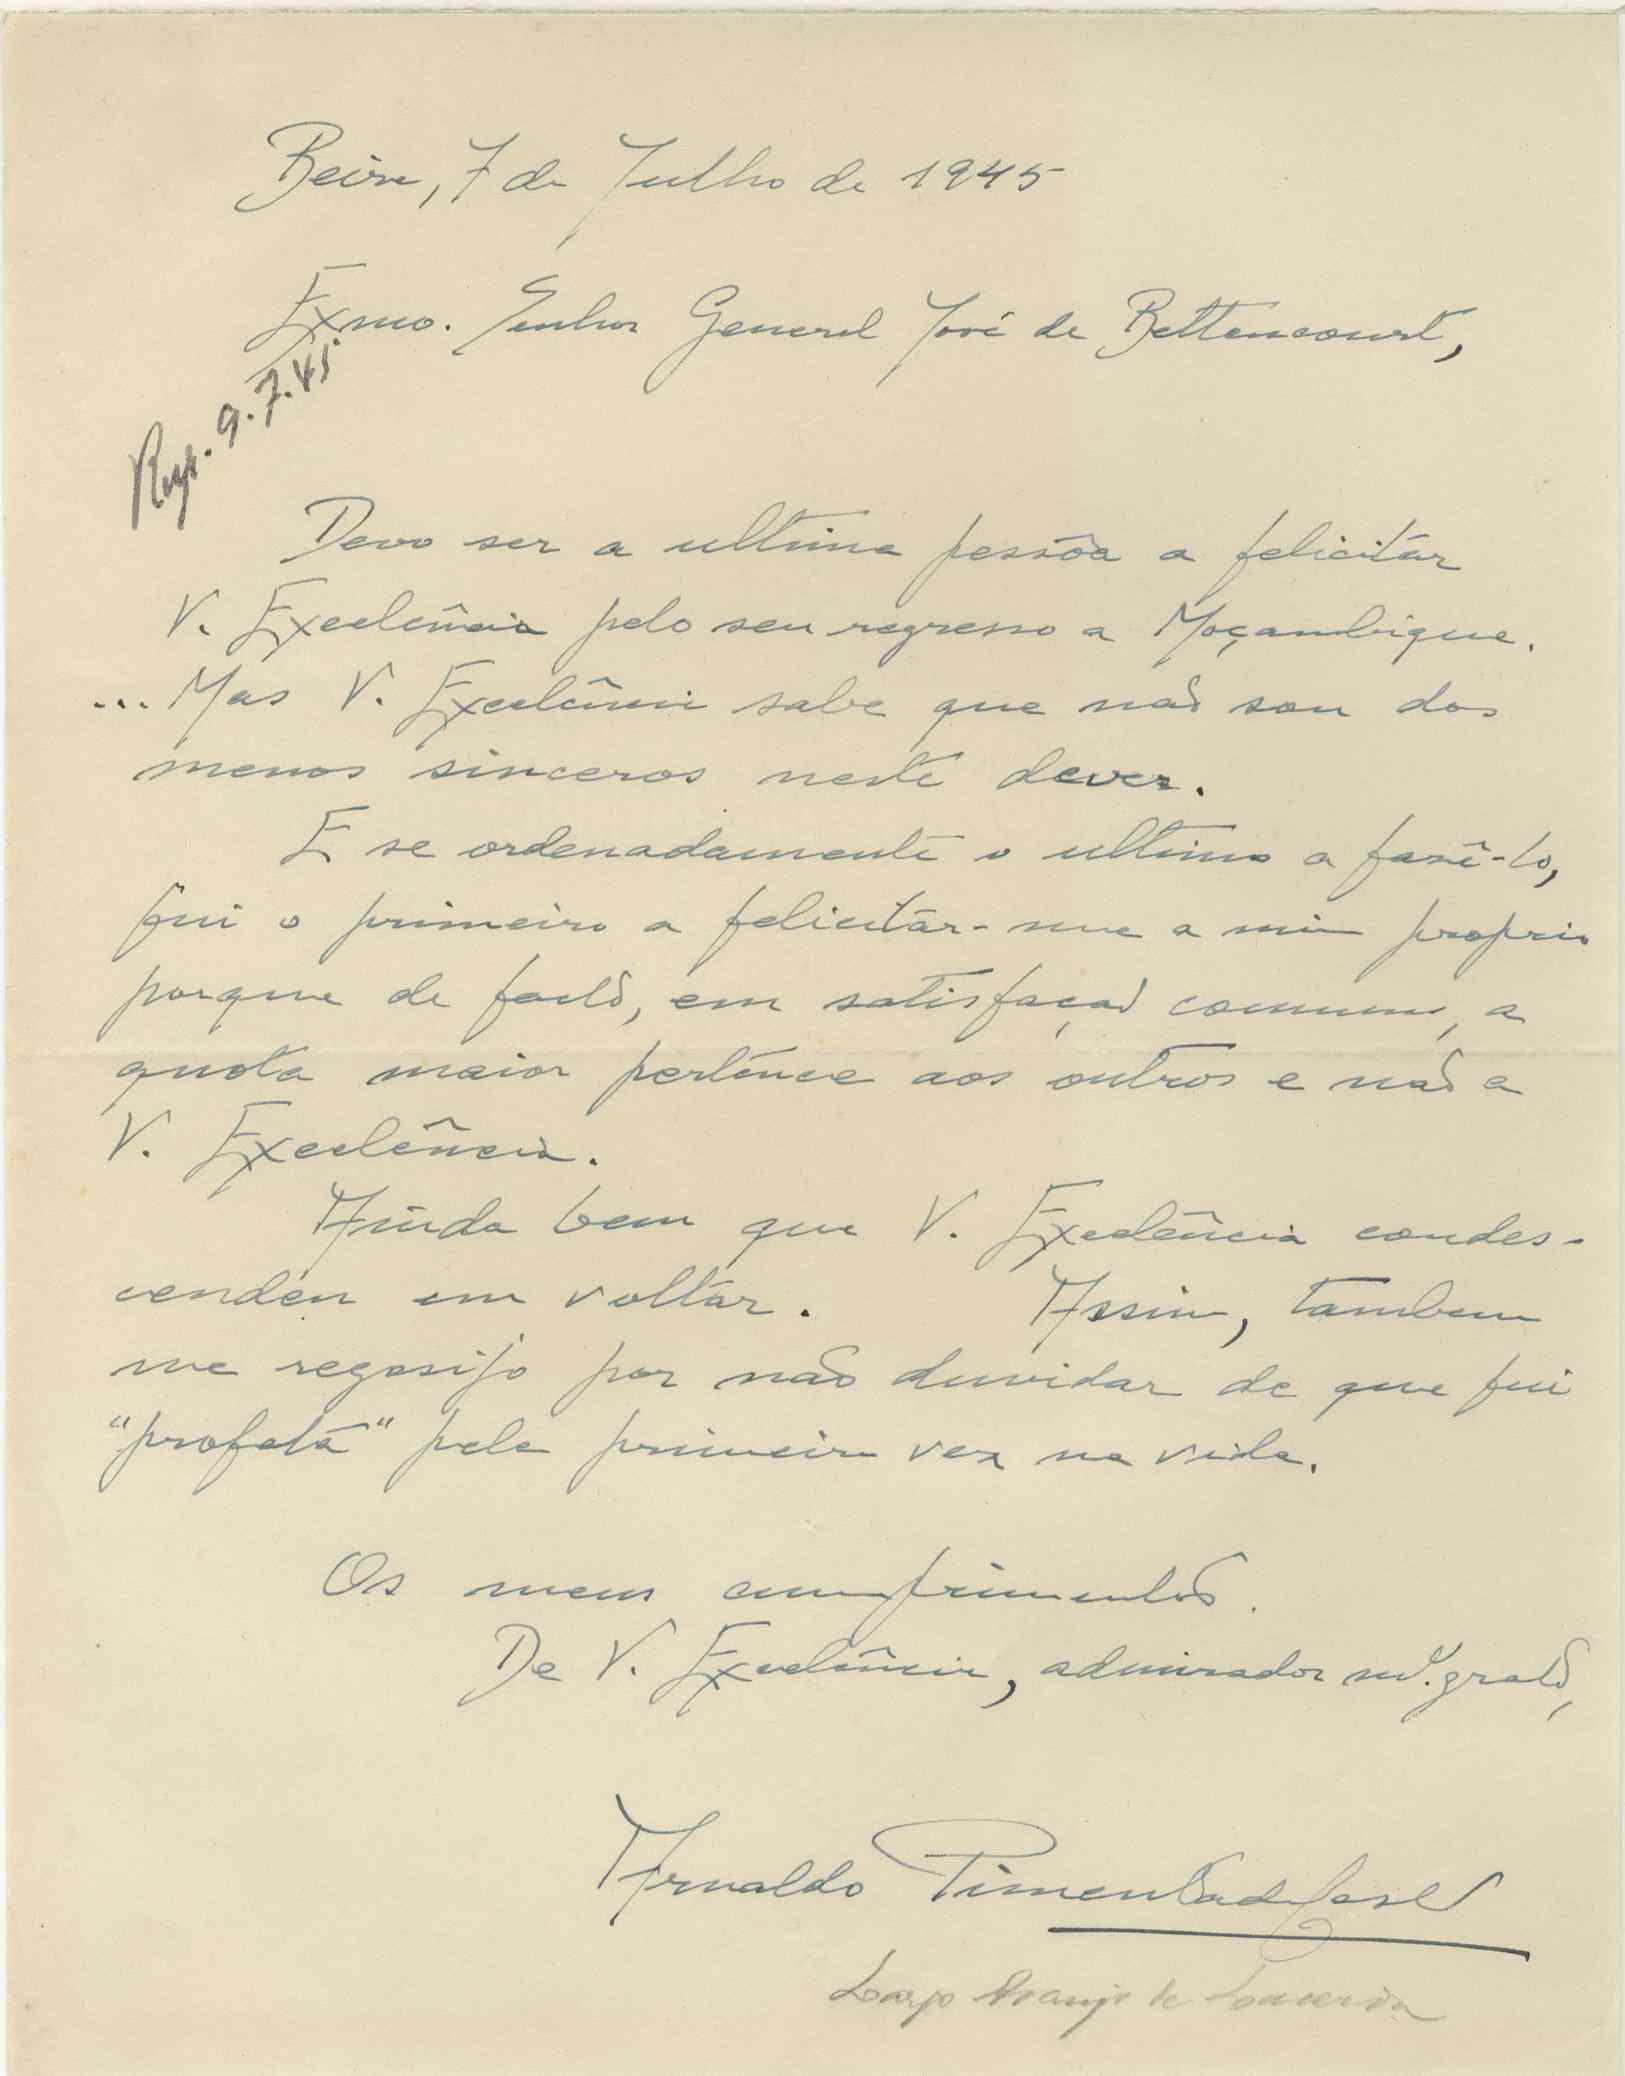 Beira, 7 de Julho de 1945
Exmo. Senhor General José de Bettencourt,
Resp. 9.7.45.
Devo ser a ultima pessôa a felicitár
V. Excelência pelo seu regresso a Moçambique.
... Mas V. Excelência sabe que não sou dos
menos sinceros neste dever.
E se ordenadamente o ultimo a fasê-lo,
fui o primeiro a felicitár-me a mim proprio
porque de facto, em satisfação comum, a
quota maior pertence aos outros e não a
V. Excelência.
Ainda bem que V. Excelência condes-
cendeu em voltar. Assim, tambem
me regosijo por não duvidar de que fui
"profeta" pela primeira vez na vida.
Os meus cumprimentos.
De V. Excelência, admirador mº. grato,
Arnaldo Pimenta de
Largo Araujo de Lacerda